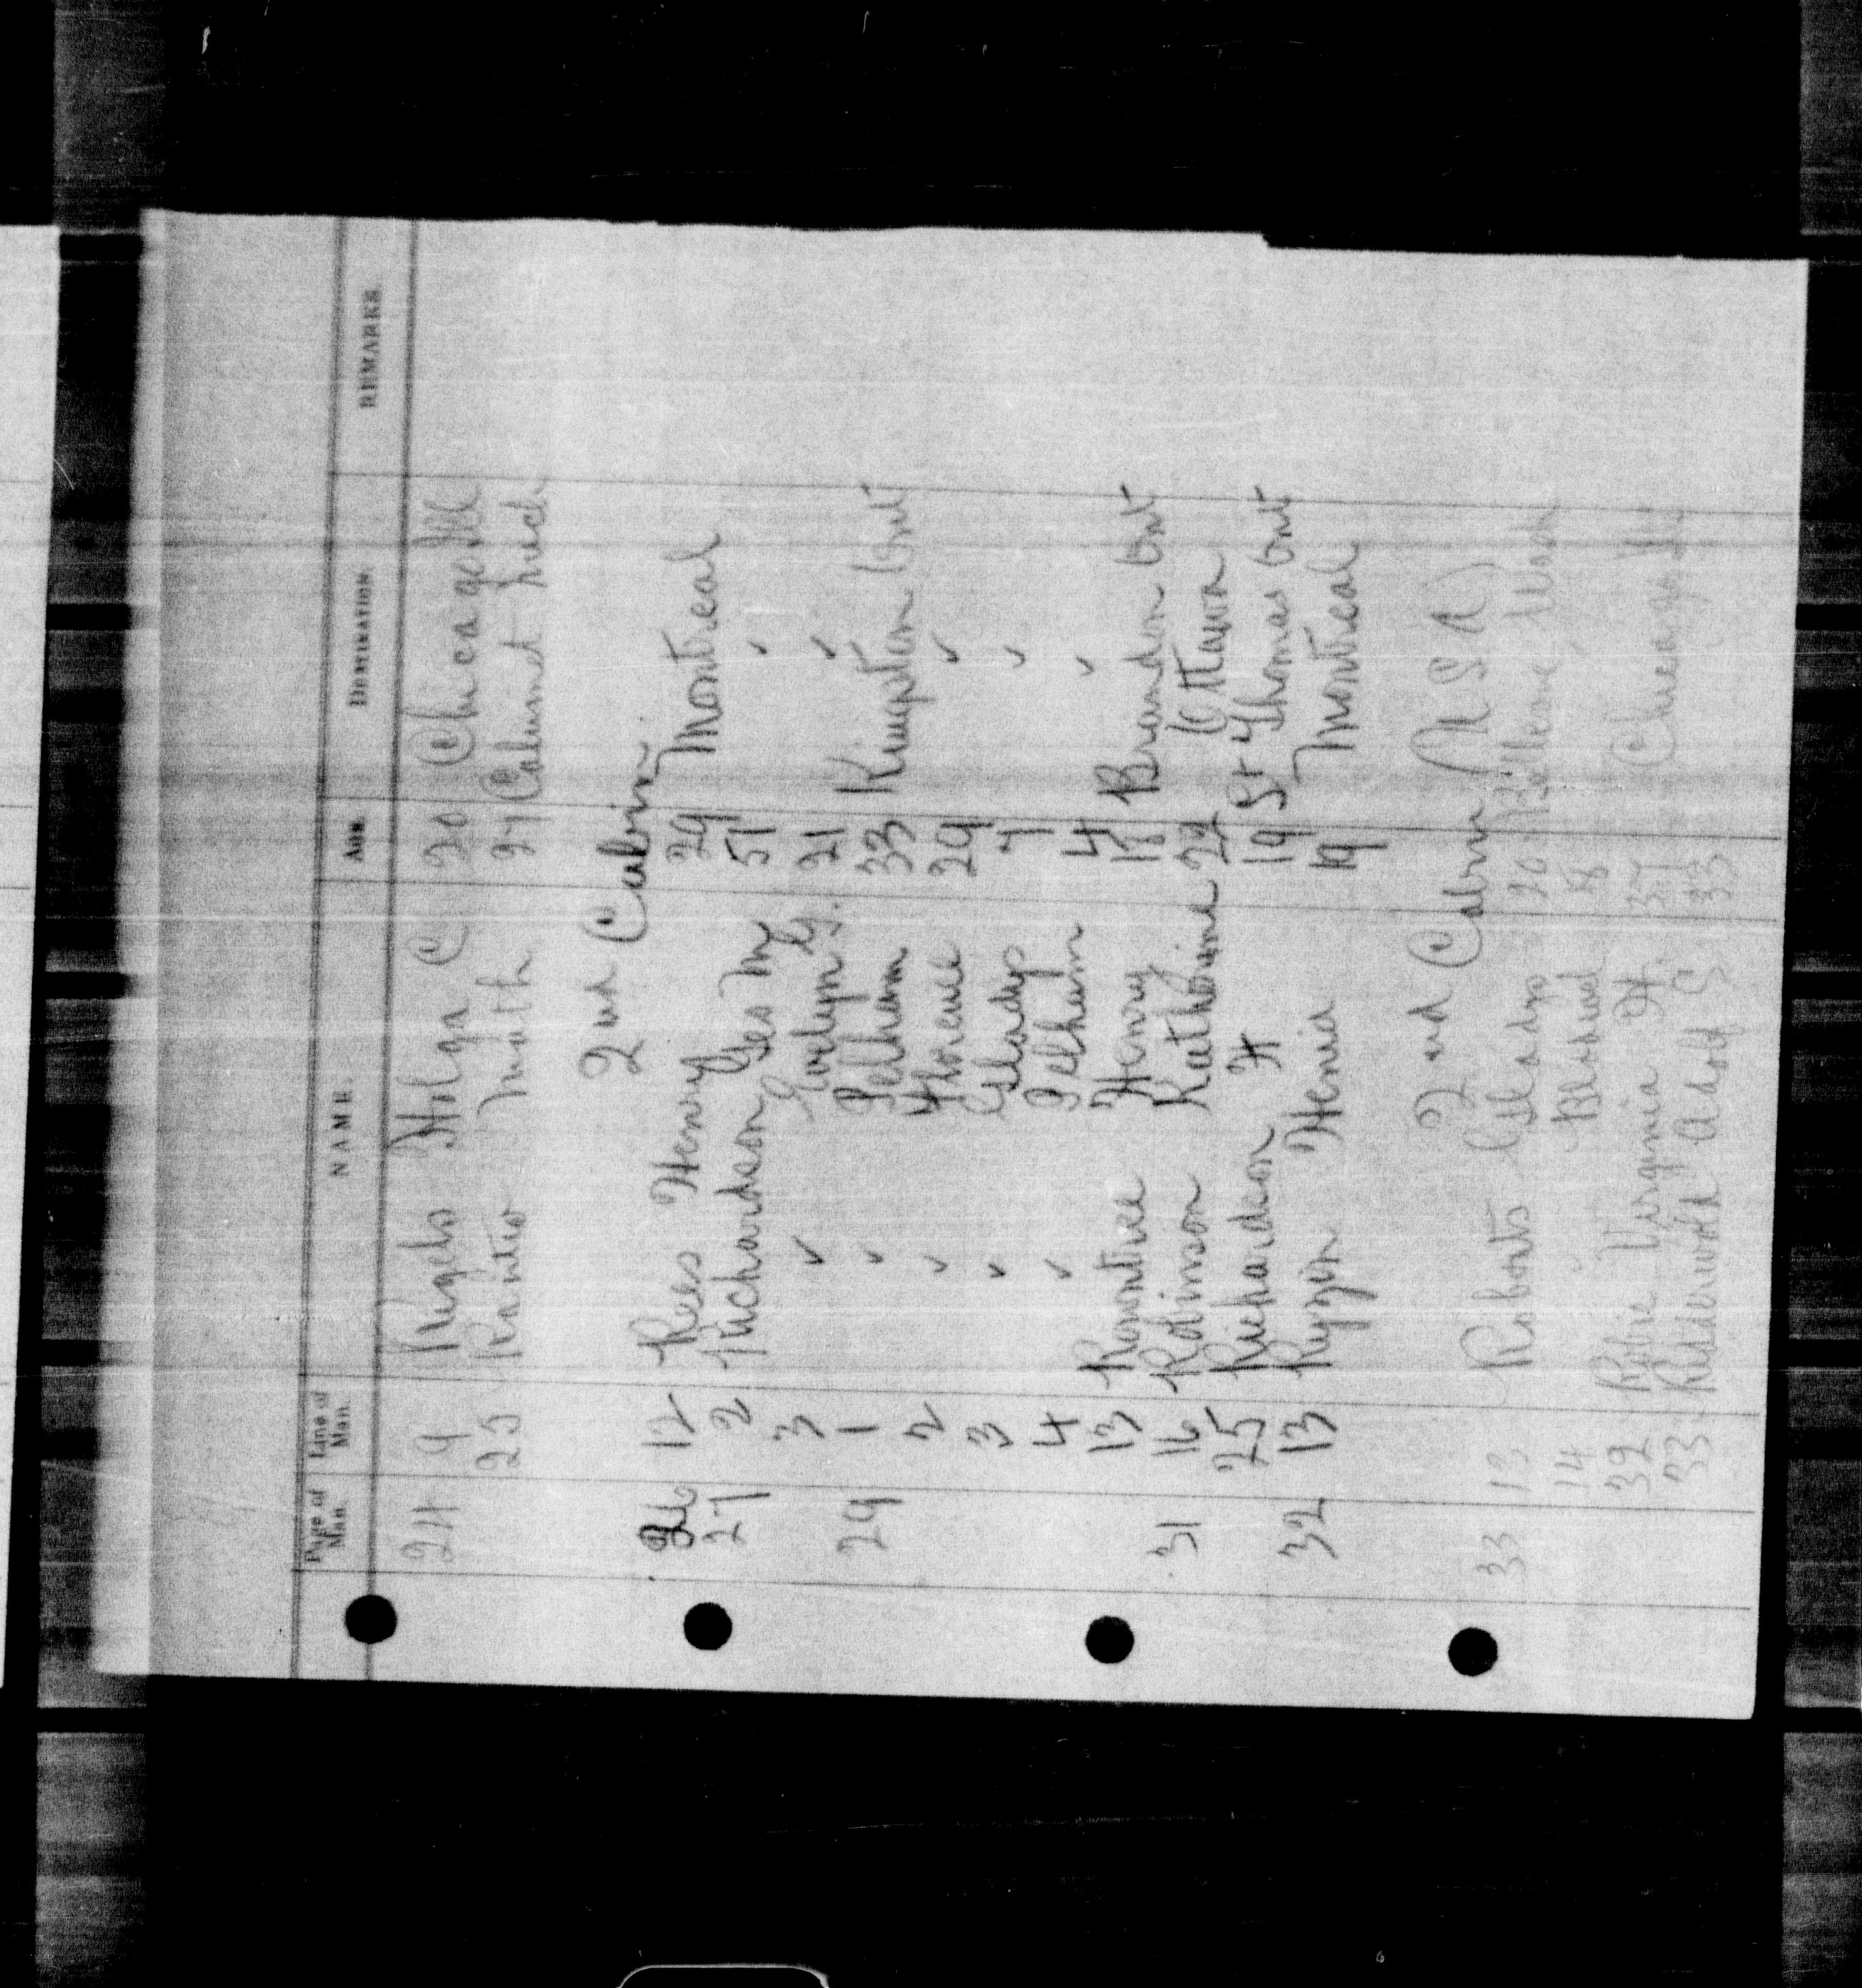 Page of Man. Line of Man. NAME. AGE. DESTINATION. REMARKS.
24 9 Holga C 20 Chicago Ill
25 Math 27 Calumet Mich
2nd Cabin
26 12 Rees Henry 29 Montreal
27 2 Richardson Geo M 51 ✓
3 ✓ Evelyn G. 21 ✓
29 1 ✓ Pelham 33 Kingston Ont
2 ✓ Florence 29 ✓
3 ✓ Gladys 7 ✓
4 ✓ Pelham 4 ✓
13 Rowntree Henry 18 Brandon Ont
31 16 Robinson Katherine 22 Ottawa
25 Richardson H 19 St Thomas Ont
32 13 Henie 19 Montreal
2nd Cabin U S A
33 13 Roberts Gladys 20 Wash
14 18
32 Robie Virginia H. 37 Chicago Ill
33 Adolf S 33